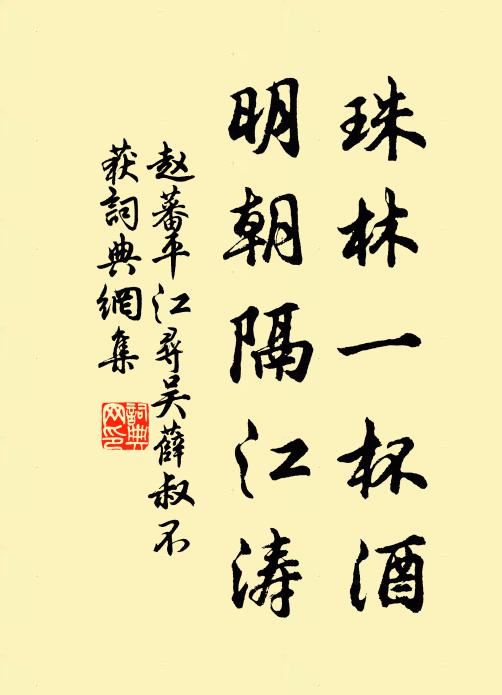 珠林一杯酒
明朝隔江涛
赵蕃平江尋吴薛叔不
获詞典網集
詞典网印